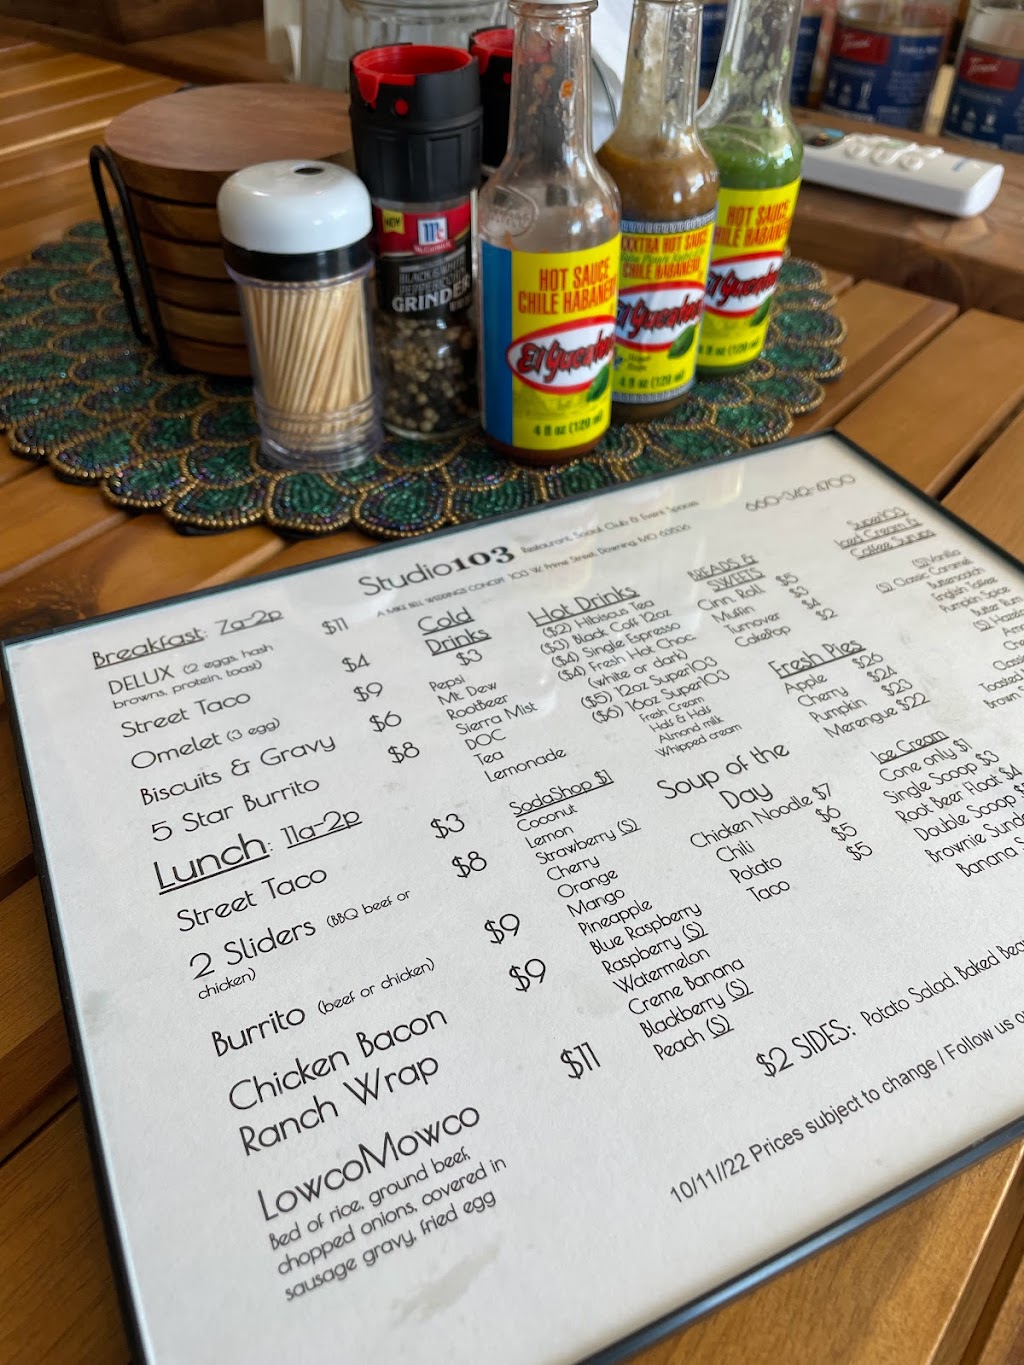 NEW
McCORMICK
BLACK & WHITE
PEPPERCORN
GRINDER
HOT SAUCE
CHILE HABANERO
El Yucateco
4 fl oz (120 ml)
XXXTRA HOT SAUCE
CHILE HABANERO
El Yucateco
4 fl oz (120 ml)
HOT SAUCE
CHILE HABANERO
El Yucateco
4 fl oz (120 ml)
Torani
Torani
Studio103 Restaurant, Social Club & Event Spaces 660-342-6700
A MIKE BILL WEDDINGS CONCEPT 103 W. Prime Street, Downing, MO 63536
Breakfast: 7a-2p
DELUX (2 eggs, hash $11
browns, protein, toast)
Street Taco $4
Omelet (3 egg) $9
Biscuits & Gravy $6
5 Star Burrito $8
Lunch: 11a-2p
Street Taco $3
2 Sliders (BBQ beef or $8
chicken)
Burrito (beef or chicken) $9
Chicken Bacon $9
Ranch Wrap
LowcoMowco $11
Bed of rice, ground beef,
chopped onions, covered in
sausage gravy, fried egg
Cold
Drinks
$3
Pepsi
Mt. Dew
RootBeer
Sierra Mist
DOC
Tea
Lemonade
SodaShop $1
Coconut
Lemon
Strawberry (S)
Cherry
Orange
Mango
Pineapple
Blue Raspberry
Raspberry (S)
Watermelon
Creme Banana
Blackberry (S)
Peach (S)
Hot Drinks
($2) Hibiscus Tea
($3) Black Coff 12oz
($4) Single Espresso
($4) Fresh Hot Choc.
(white or dark)
($5) 12oz Super103
($6) 16oz Super103
Fresh Cream
Half & Half
Almond milk
Whipped cream
Soup of the
Day
Chicken Noodle $7
Chili $6
Potato $5
Taco $5
BREADS &
SWEETS
Cinn Roll $5
Muffin $3
Turnover $4
CakePop $2
Fresh Pies
Apple $26
Cherry $24
Pumpkin $23
Merengue $22
Super103
Iced Cream &
Coffee Syrups
(S) Vanilla
(S) Classic Caramel
Butterscotch
English Toffee
Pumpkin Spice
Butter Rum
(S)
Classic
Toasted
Brown
Ice Cream
Cone only $1
Single Scoop $3
Root Beer Float $4
Double Scoop
Brownie
Banana
$2 SIDES: Potato Salad, Baked
10/11//22 Prices subject to change / Follow us